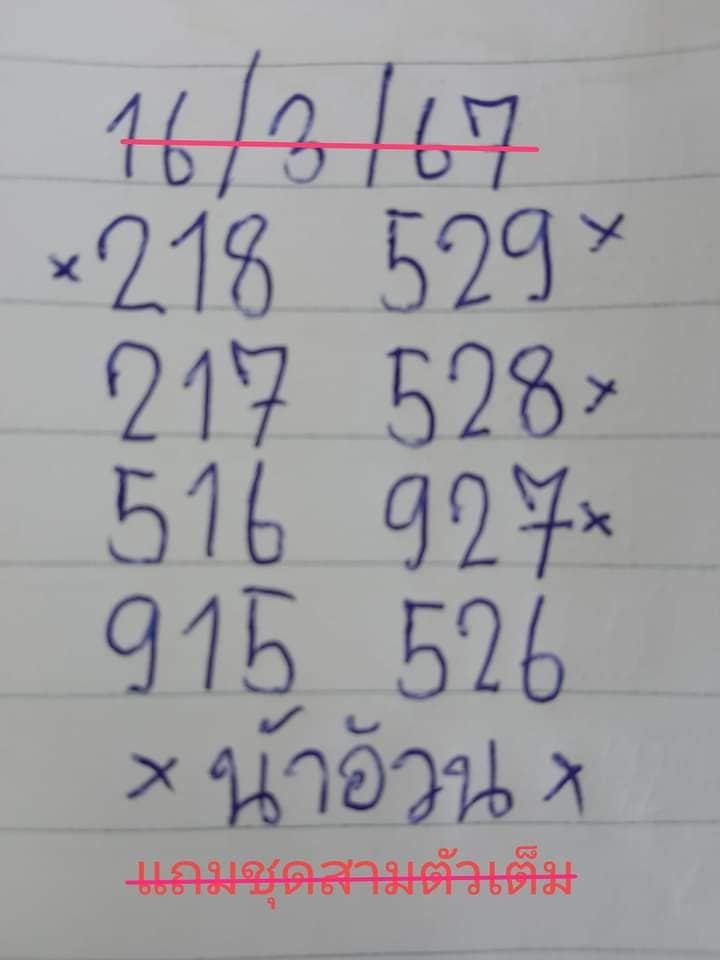 16/3/67
×218 529×
217 528×
516 927×
915 526
× น้าอ้วน ×
แถมชุดสามตัวเต็ม